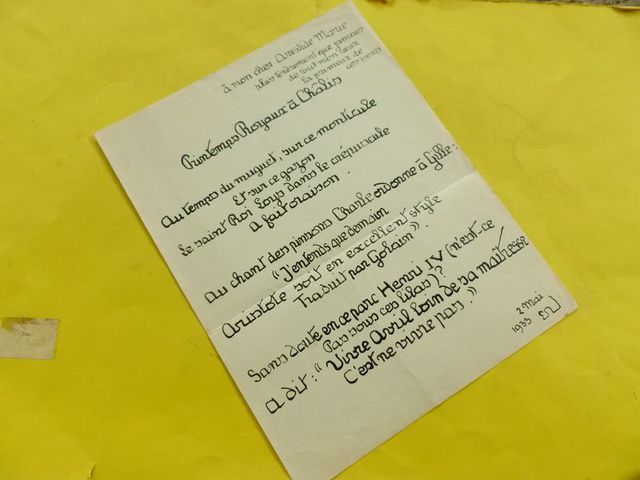 à mon cher Aristide Marie
plus tendrement que jamais
de tout mon cœur
la primeur de
ces vers
Printemps Royaux à Châlis
Au temps du muguet, sur ce monticule
Et sur ce gazon
Le saint Roi Louis dans le crépuscule
A fait oraison.
Au chant des pinsons Charle ordonne à Gille:
"J'entends que demain
Aristote soit en excellent style
Traduit par Golain".
Sans doute en ce parc Henri IV (n'est-ce
Pas sous ces lilas)?
A dit: "Vivre Avril loin de sa maîtresse
C'est ne vivre pas"
2 Mai
1933